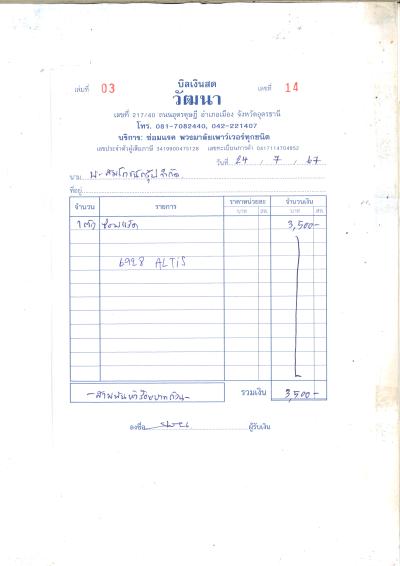 บิลเงินสด
เล่มที่ 03 เลขที่ 14
วัฒนา
เลขที่ 217/40 ถนนอุดรดุษฎี อำเภอเมือง จังหวัดอุดรธานี
โทร. 081-7082440, 042-221407
บริการ: ซ่อมแรค พวงมาลัยเพาเวอร์ทุกชนิด
เลขประจำตัวผู้เสียภาษี 3419900475128 เลขทะเบียนการค้า 0417114704952
วันที่ 24 / 7 / 67
นาม
ที่อยู่
จำนวน รายการ ราคาหน่วยละ จำนวนเงิน
บาท สต. บาท สต.
ซ่อมแร็ค 3,500-
6928 ALTIS
-สามพันห้าร้อยบาทถ้วน- รวมเงิน 3,500-
ลงชื่อ ผู้รับเงิน